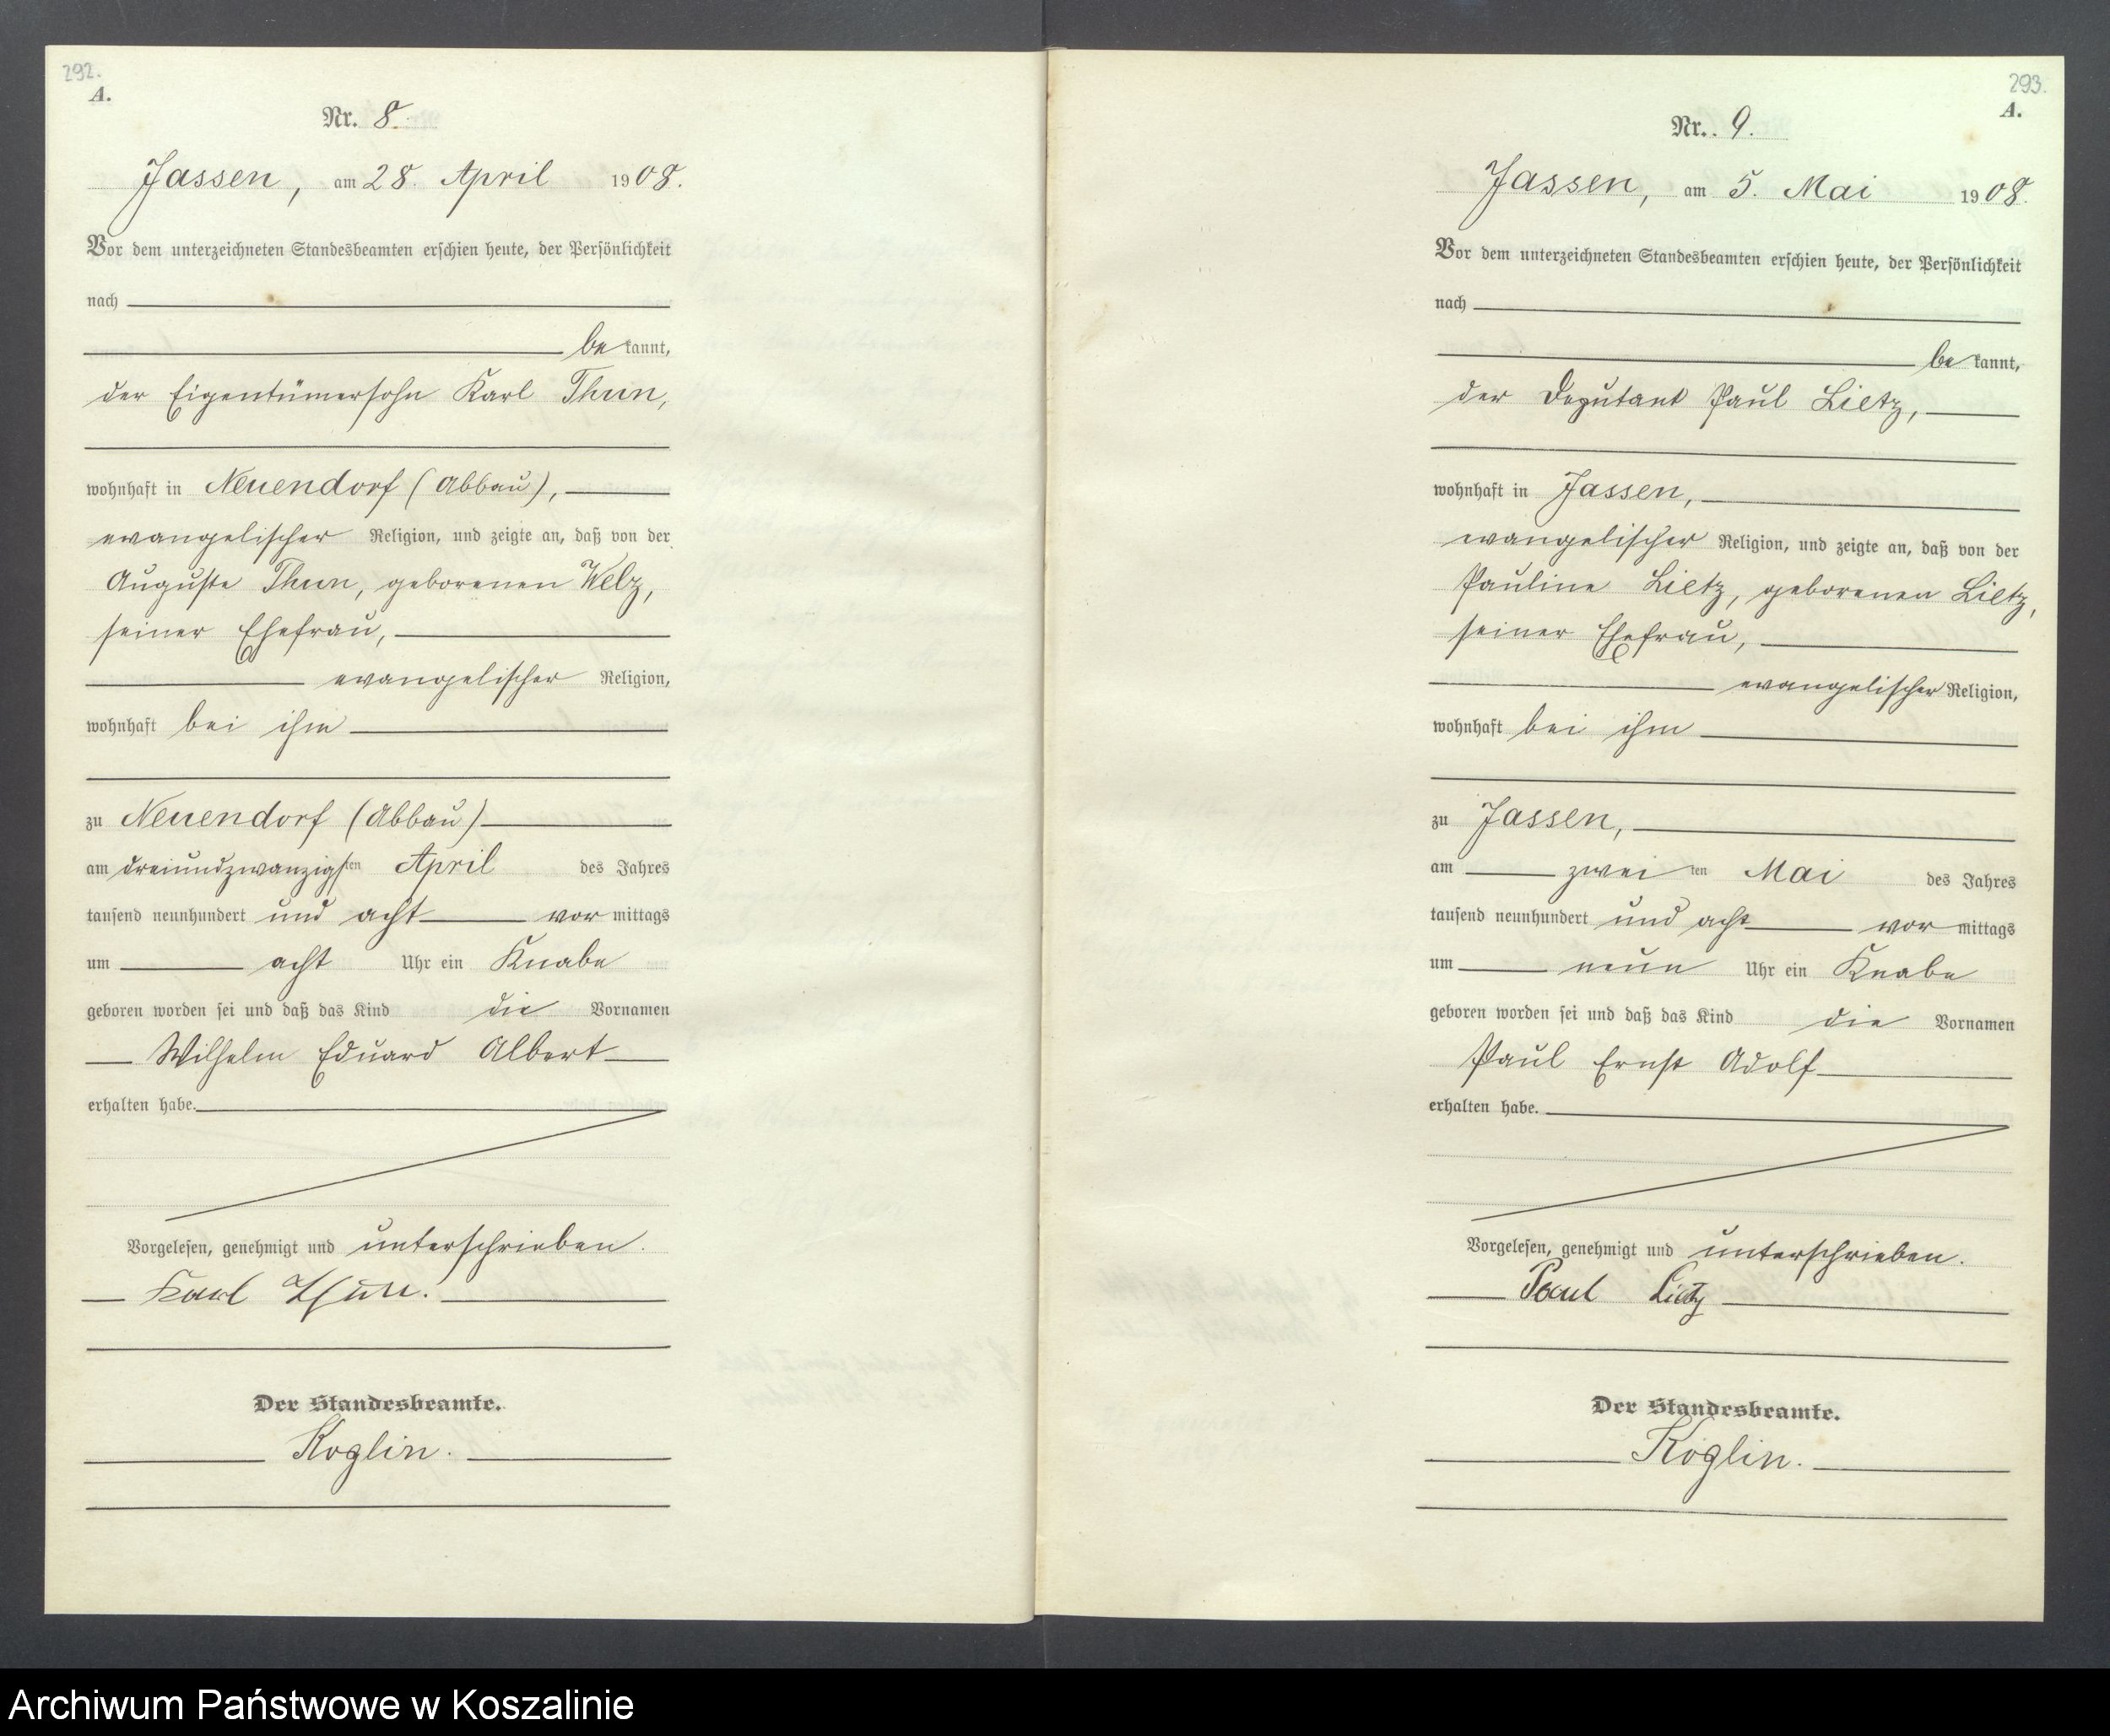 292.
A.
Nr. 8.
Jassen, am 28. April 1908.
Vor dem unterzeichneten Standesbeamten erschien heute, der Persönlichkeit
nach
be kannt,
der Eigentümersohn Karl Thun,
wohnhaft in Neuendorf (Abbau),
evangelischer Religion, und zeigte an, daß von der
Auguste Thun, geborenen Welz,
seiner Ehefrau,
evangelischer Religion,
wohnhaft bei ihm
zu Neuendorf (Abbau)
am dreiundzwanzigsten April des Jahres
tausend neunhundert und acht vor mittags
um acht Uhr ein Knabe
geboren worden sei und daß das Kind die Vornamen
Wilhelm Eduard Albert
erhalten habe.
Vorgelesen, genehmigt und unterschrieben.
Karl Thun.
Der Standesbeamte.
Koglin.
293.
A.
Nr. 9.
Jassen, am 5. Mai 1908.
Vor dem unterzeichneten Standesbeamten erschien heute, der Persönlichkeit
nach
be kannt,
der Deputant Paul Lietz,
wohnhaft in Jassen,
evangelischer Religion, und zeigte an, daß von der
Pauline Lietz, geborenen Lietz,
seiner Ehefrau,
evangelischer Religion,
wohnhaft bei ihm
zu Jassen,
am zwei ten Mai des Jahres
tausend neunhundert und acht vor mittags
um neun Uhr ein Knabe
geboren worden sei und daß das Kind die Vornamen
Paul Ernst Adolf
erhalten habe.
Vorgelesen, genehmigt und unterschrieben.
Paul Lietz
Der Standesbeamte.
Koglin.
Archiwum Państwowe w Koszalinie